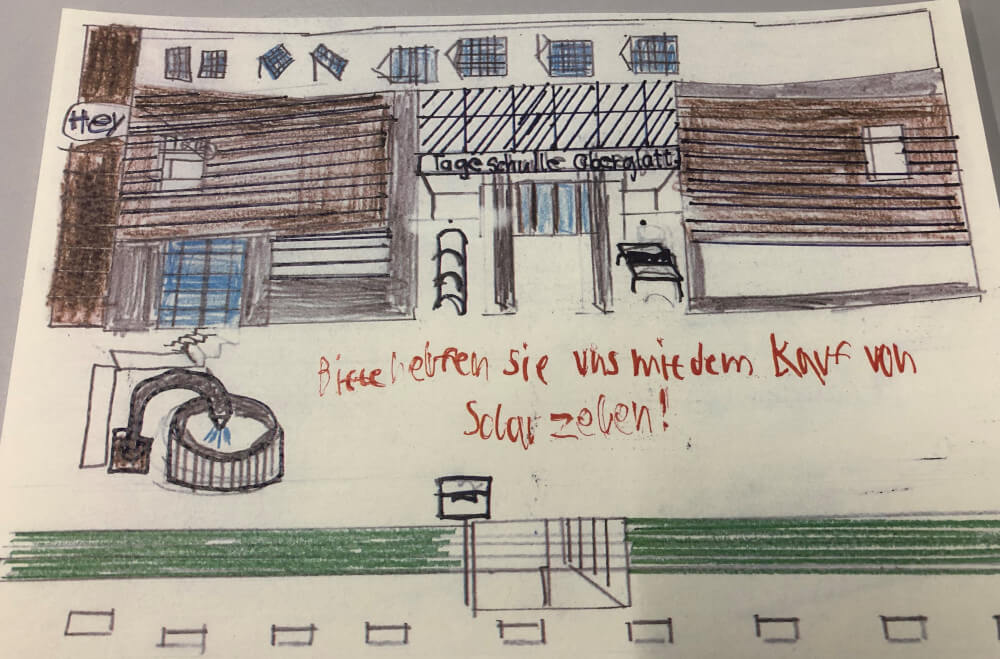 Hey
Tageschulle Oberglatt
Bitte helfen sie uns mit dem Kauf von
Solarzelen!